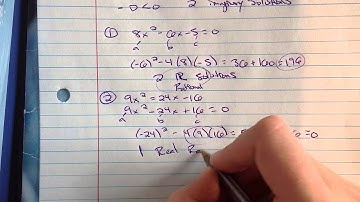 -D<0 2 Imaginary Solutions
① 8x² - 6x - 5 = 0
a b c
(-6)² - 4(8)(-5) = 36 + 160 = 196
2 R Solutions
Rational
② 9x² = 24x - 16
9x² - 24x + 16 = 0
a b c
(-24)² - 4(9)(16) = 5 = 0
1 Real R